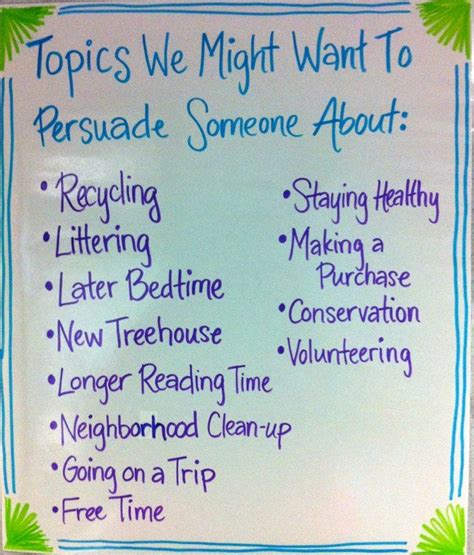 Topics We Might Want To
Persuade Someone About:
• Recycling
• Littering
• Later Bedtime
• New Treehouse
• Longer Reading Time
• Neighborhood Clean-up
• Going on a Trip
• Free Time
• Staying Healthy
• Making a
Purchase
• Conservation
• Volunteering